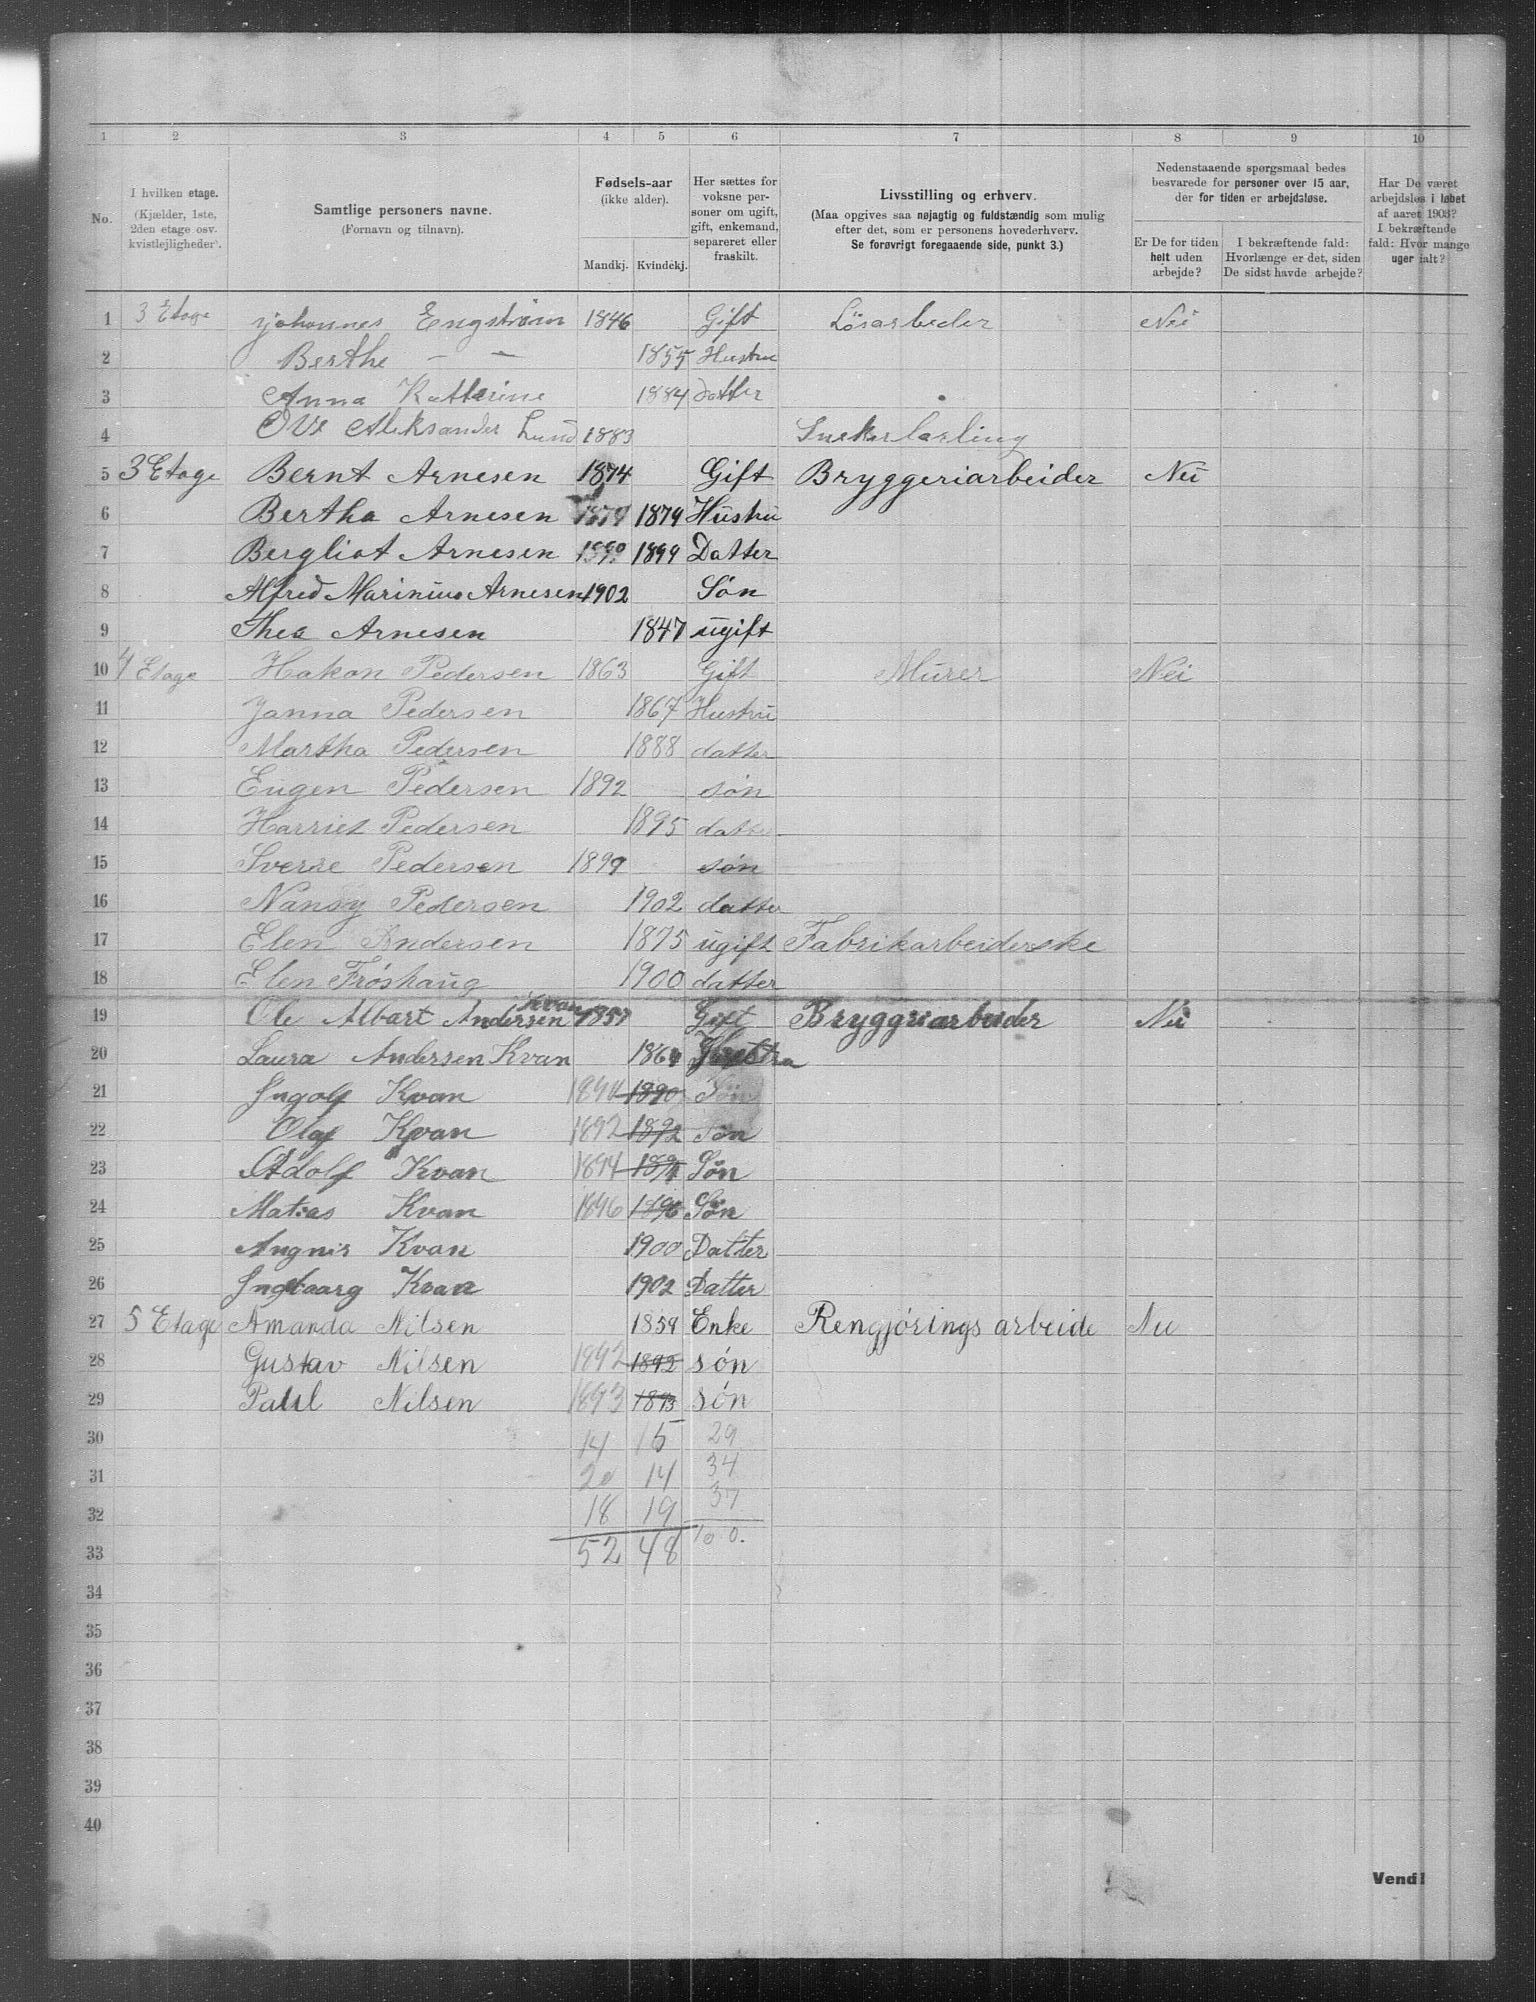 1 2 3 4 5 6 7 8 9 10
No.
I hvilken etage.
(Kjælder, 1ste, 2den etage osv. kvistlejligheder).
Samtlige personers navne.
(Fornavn og tilnavn).
Fødsels-aar
(ikke alder).
Mandkj. Kvindekj.
Her sættes for voksne personer om ugift, gift, enkemand, separeret eller fraskilt.
Livsstilling og erhverv.
(Maa opgives saa nøjagtig og fuldstændig som mulig efter det, som er personens hovederhverv.
Se forøvrigt foregaaende side, punkt 3.)
Nedenstaaende spørgsmaal bedes besvarede for personer over 15 aar, der for tiden er arbejdsløse.
Er De for tiden helt uden arbejde?
I bekræftende fald: Hvorlænge er det, siden De sidst havde arbejde?
Har De været arbejdsløs i løbet af aaret 1903? I bekræftende fald: Hvor mange uger ialt?
1 3 Etage Johannes Engstrøm 1846 Gift Lösarbeder Nei
2 Berthe — — 1855 Hustru
3 Anna Katterine 1884 datter
4 Ove Aleksander Lund 1883 Snekerlærling
5 3 Etage Bernt Arnesen 1874 Gift Bryggeriarbeider Nei
6 Bertha Arnesen 1879 1879 Hustru
7 Bergliot Arnesen 1899 1899 Datter
8 Alfred Marinius Arnesen 1902 Søn
9 Thea Arnesen 1847 ugift
10 4 Etage Hakon Pedersen 1863 Gift Murer Nei
11 Janna Pedersen 1867 Hustru
12 Martha Pedersen 1888 datter
13 Eugen Pedersen 1892 søn
14 Harriet Pedersen 1895 datter
15 Sverre Pedersen 1899 søn
16 Nansy Pedersen 1902 datter
17 Elen Andersen 1875 ugift Fabrikarbeiderske
18 Elen Frøshaug 1900 datter
19 Ole Albart Andersen Kvan 1857 Gift Bryggriarbeider Nei
20 Laura Andersen Kvan 1864
21 Ingolf Kvan 1890 Søn
22 Olaf Kvan 1892 1892 Søn
23 Adolf Kvan 1894 1894 Søn
24 Matias Kvan 1896 1896 Søn
25 Angnis Kvan 1900 Datter
26 Kvan 1902 Datter
27 5 Etage Amanda Nilsen 1859 Enke Rengjørings arbeide Nei
28 Gustav Nilsen 1892 1892 søn
29 Paul Nilsen 1893 1893 søn
30 14 15 29
31 20 14 34
32 18 19 37
33 52 48 100.
34
35
36
37
38
39
40
Vend!